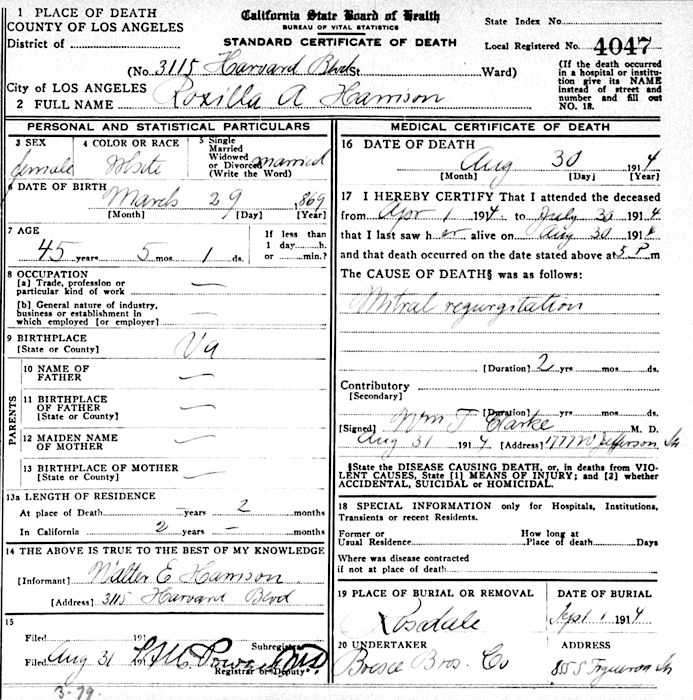 1 PLACE OF DEATH
COUNTY OF LOS ANGELES
District of
California State Board of Health
BUREAU OF VITAL STATISTICS
STANDARD CERTIFICATE OF DEATH
State Index No.
Local Registered No. 4047
(No. 3115 Harvard Blvd St. Ward)
(If the death occurred in a hospital or institution give its NAME instead of street and number and fill out NO. 18.
City of LOS ANGELES
2 FULL NAME Roxilla A Harrison
PERSONAL AND STATISTICAL PARTICULARS
3 SEX female
4 COLOR OR RACE White
5 Single
Married
Widowed
or Divorced
(Write the Word) married
6 DATE OF BIRTH
March 29, 1869
[Month] [Day] [Year]
7 AGE
45 years 5 mos. 1 ds.
If less than
1 day......h.
or ......min.?
8 OCCUPATION
[a] Trade, profession or
particular kind of work —
[b] General nature of industry,
business or establishment in
which employed [or employer] —
9 BIRTHPLACE
[State or County] Va
PARENTS
10 NAME OF
FATHER —
11 BIRTHPLACE
OF FATHER
[State or County] —
12 MAIDEN NAME
OF MOTHER —
13 BIRTHPLACE OF MOTHER
[State or County] —
13a LENGTH OF RESIDENCE
At place of Death years 2 months
In California 2 years — months
14 THE ABOVE IS TRUE TO THE BEST OF MY KNOWLEDGE
[Informant] Walter E Harrison
[Address] 3115 Harvard Blvd
15
Filed 191
Subregistrar
Filed Aug 31 191
Registrar or Deputy
3-79
MEDICAL CERTIFICATE OF DEATH
16 DATE OF DEATH
Aug 30 1914
[Month] [Day] [Year]
17 I HEREBY CERTIFY That I attended the deceased
from Apr 1 1914 to July 30 1914
that I last saw her alive on Aug 30 1914
and that death occurred on the date stated above at 5 P m
The CAUSE OF DEATH§ was as follows:
Mitral regurgitation
[Duration] 2 yrs mos. ds.
Contributory
[Secondary]
[Duration] yrs mos. ds.
[Signed] Wm T Clarke M. D.
Aug 31 1914 [Address] 1777 W Jefferson St
§State the DISEASE CAUSING DEATH, or, in deaths from VIOLENT CAUSES, State [1] MEANS OF INJURY; and [2] whether ACCIDENTAL, SUICIDAL or HOMICIDAL.
18 SPECIAL INFORMATION only for Hospitals, Institutions,
Transients or recent Residents.
Former or
Usual Residence
How long at
Place of death Days
Where was disease contracted
if not at place of death
19 PLACE OF BURIAL OR REMOVAL
Rosdale
DATE OF BURIAL
Sept 1 1914
20 UNDERTAKER
Bresee Bros. Co
ADDRESS
855 S Figueroa St